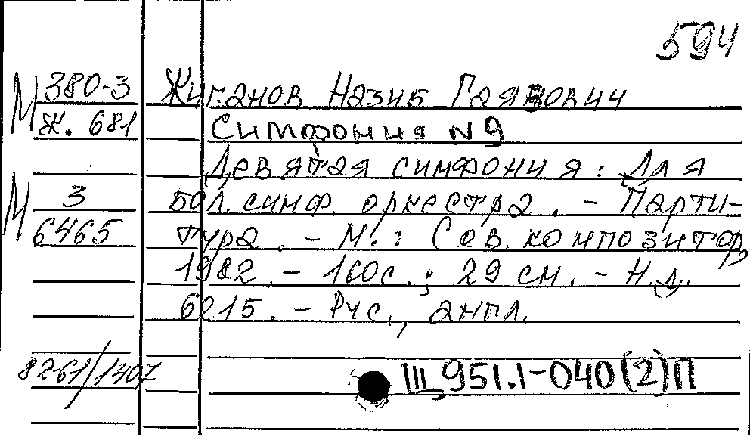 594
М 380-3 Жиганов Назиб Гаязович
Ж. 681 Симфония N 9
Девятая симфония: Для
М 3 бол. симф. оркестра. - Парти-
6465 тура. - М.: Сов. композитор,
1982. - 160 с.; 29 см. - Н.д.
6215. - Рус., англ.
8261/1407
Щ951.1-040(2)П